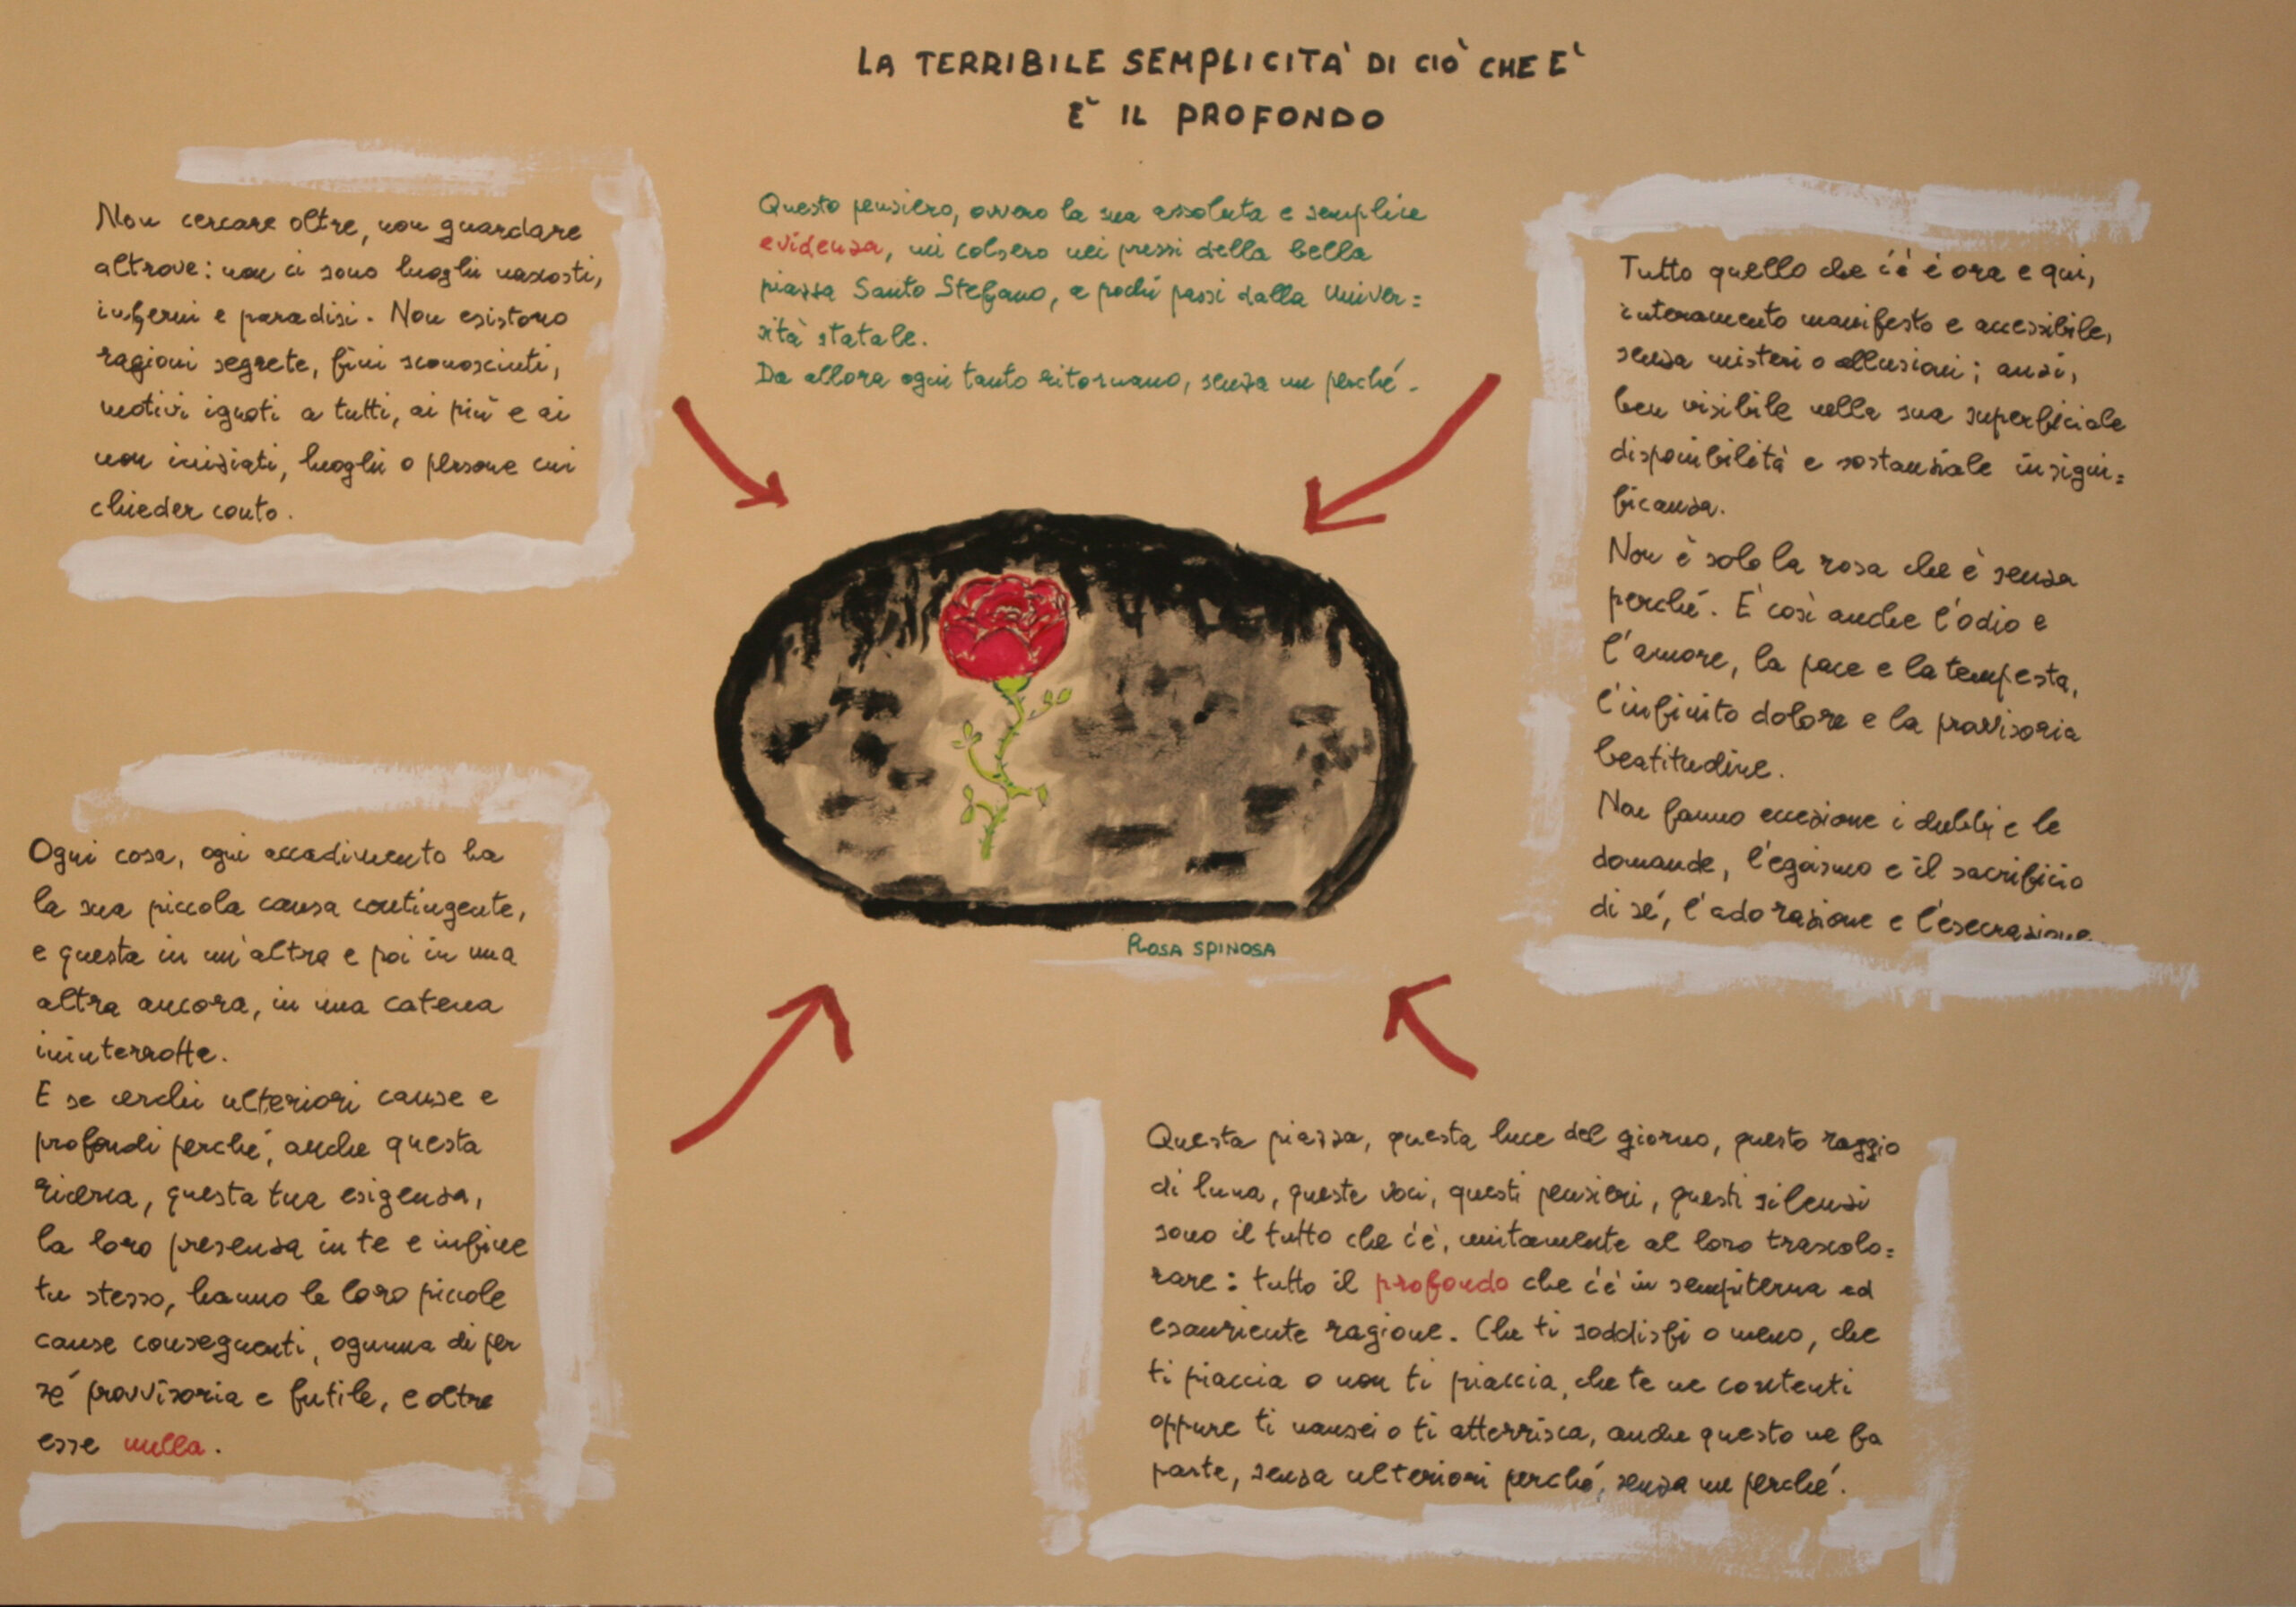 LA TERRIBILE SEMPLICITA' DI CIO' CHE E'
E' IL PROFONDO
Questo pensiero, ovvero la sua assoluta e semplice
evidenza, mi colsero nei pressi della bella
piazza Santo Stefano, a pochi passi dalla Univer=
sità statale.
Da allora ogni tanto ritornano, senza un perché.
Non cercare oltre, non guardare
altrove: non ci sono luoghi nascosti,
inferni e paradisi. Non esistono
ragioni segrete, fini sconosciuti,
motivi ignoti a tutti, ai più e ai
non iniziati, luoghi o persone cui
chieder conto.
Tutto quello che c'è è ora e qui,
interamente manifesto e accessibile,
senza misteri o allusioni; anzi,
ben visibile nella sua superficiale
disponibilità e sostanziale insigni=
ficanza.
Non è solo la rosa che è senza
perché. E' così anche l'odio e
l'amore, la pace e la tempesta,
l'infinito dolore e la provvisoria
beatitudine.
Non fanno eccezione i dubbi e le
domande, l'egoismo e il sacrificio
di sé, l'adorazione e l'esecrazione
ROSA SPINOSA
Ogni cosa, ogni accadimento ha
la sua piccola causa contingente,
e questa in un'altra e poi in una
altra ancora, in una catena
ininterrotta.
E se cerchi ulteriori cause e
profondi perché, anche questa
ricerca, questa tua esigenza,
la loro presenza in te e infine
tu stesso, hanno le loro piccole
cause conseguenti, ognuna di per
sé provvisoria e futile, e oltre
esse nulla.
Questa piazza, questa luce del giorno, questo raggio
di luna, queste voci, questi pensieri, questi silenzi
sono il tutto che c'è, unitamente al loro trascolo=
rare: tutto il profondo che c'è in sempiterna ed
esauriente ragione. Che ti soddisfi o meno, che
ti piaccia o non ti piaccia, che te ne contenti
oppure ti nausei o ti atterrisca, anche questo ne fa
parte, senza ulteriori perché, senza un perché.